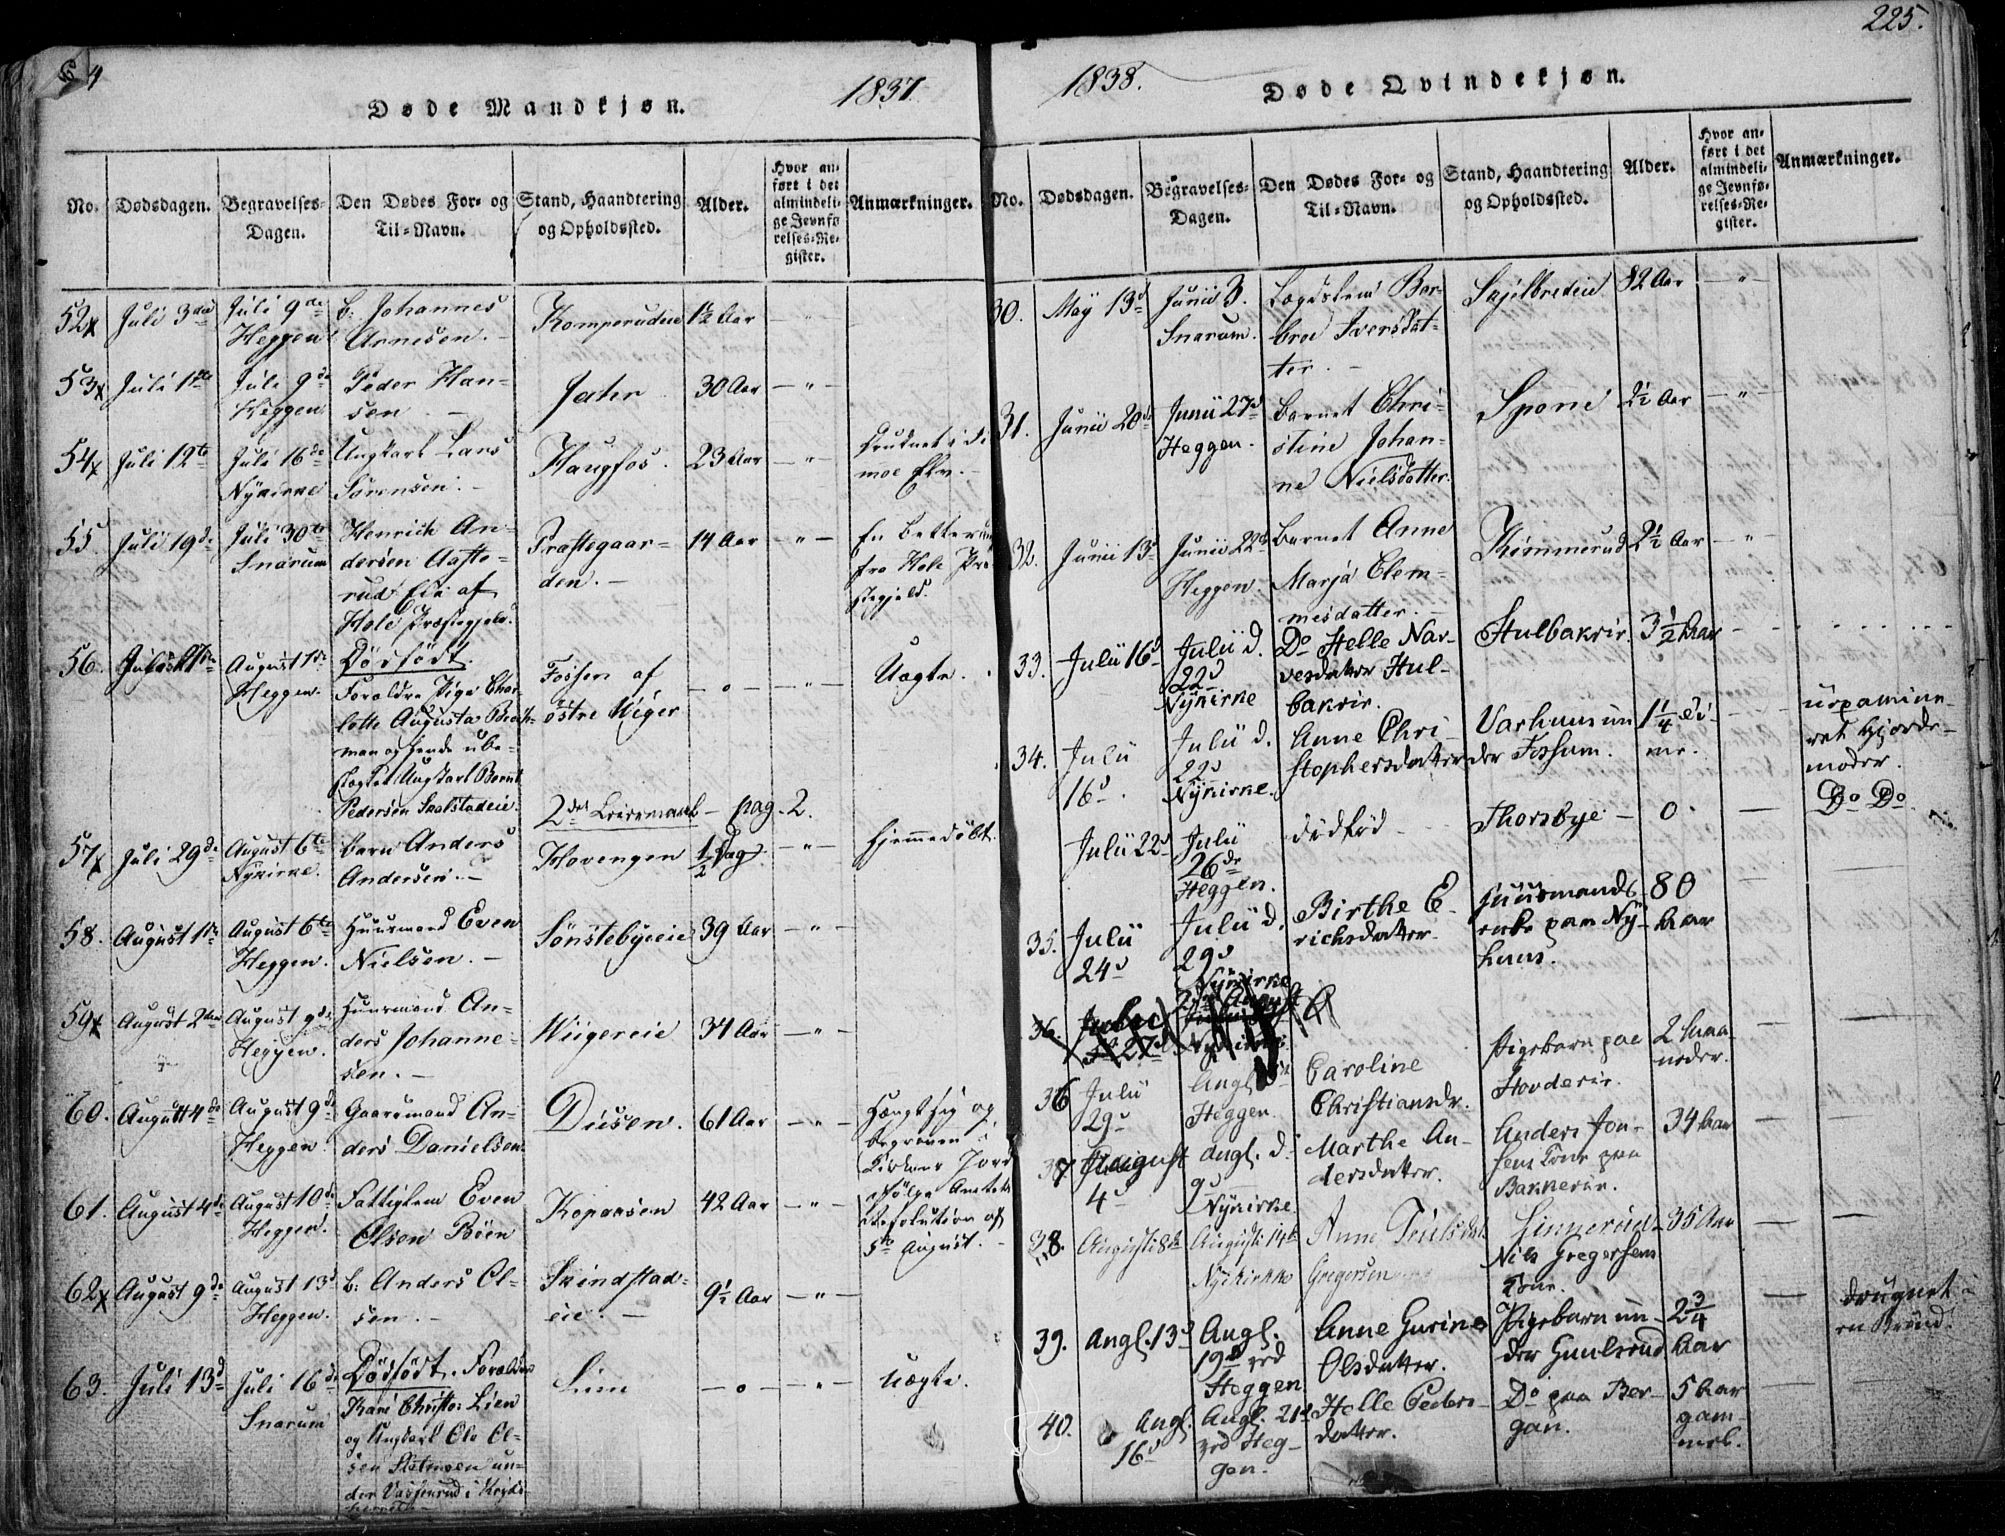 1837.
Døde Mandkjøn.
No.
Dødsdagen.
Begravelses-
Dagen.
Den Dødes For- og
Til-Navn.
Stand, Haandtering
og Opholdssted.
Alder.
Hvor an-
ført i det
almindeli-
ge Jevnfø-
relses-Re-
gister.
Anmærkninger.
52
Juli 3die
Juli 9de
Heggen
b. Johannes
Arnesen.
Komperudeie
1½ Aar
53
Juli
Juli 9de
Heggen
Peder Han-
sen
30 Aar
54
Juli 12te
Juli 16de
Nykirke
Ungkarl Lars
Sørensen.
Haugfos.
23 Aar
Druknet i Si-
moe Elv.
55
Juli 19de
Juli 30te
Snarum
Henrich An-
dersen
rud Eie af
Hole Præstegjeld.
Præstegaar-
den.
14 Aar
En Betler
fra Hole Præ-
stegjeld.
56.
August
Heggen.
Dødfødt.
Forældre Pige Char-
lotte Augusta
man og hendes
Ungkarl Bernt
Pedersen
Fossen af
østre Wiger
0
Uægte.
2det Leiermaal pag. 2.
57
Juli 29de
August 6te
Nykirke
Barn Anders
Andersen.
Hovengen
½ Dag
hjemmedøbt.
58.
August 1ste
August 6te
Heggen.
Huusmand Even
Nielsen.
Sønstebyeie
39 Aar
59
August 2den
August 9de
Heggen.
Huusmand An-
ders Johanne-
sen.
Wiigereie
34 Aar
60.
August 4de
August 9de
Heggen
Gaarmand An-
ders Danielsen
Diisen.
61 Aar
Hængt sig og
begraven i
Kirkens Jord
ifølge Amtets
Resolution af
5te August.
61.
August 4de
August 10de
Heggen.
Fattiglem Even
Olsen Bøen
Kopaasen
42 Aar
62
August 9de
August 13de
Heggen.
b. Anders Ol-
sen.
Skindstad-
eie.
9½ Aar
63.
Juli 13d
Juli 16de
Snarum
Dødfødt. Forældre
Kari Christ. Lien
og Ungkarl Ole Ol-
sen un-
der
Liin
0
Uægte.
225.
1838.
Døde Qvindekjøn.
No.
Dødsdagen.
Begravelses-
Dagen.
Den Dødes For- og
Til-Navn.
Stand, Haandtering
og Opholdssted.
Alder.
Hvor an-
ført i det
almindeli-
ge Jevnfø-
relses-Re-
gister.
Anmærkninger.
30.
May 13d
Junii 3.
Snarum.
Lægdslem Bar-
broe Iversdat-
ter.
Skjelbredeie
82 Aar
31.
Junii 20de
Junii 27d
Heggen.
Barnet Chri-
stine Johan-
ne Nielsdatter.
Spone
2½ Aar
32.
Junii 13d
Junii 22de
Heggen.
Barnet Anne
Marja Clem-
mesdatter.
Kimmerud
2½ Aar
33.
Julii 16d
Julii d.
22d
Nykirke
Do Helle Nar-
vesdatter Hul-
bakeie.
Hulbakeie.
3½ Aar
34.
Julii
16d
Julii d.
22d
Nykirke.
Anne Chri-
stophersdatter
Varhuus un-
der Fossum.
1¼ Ti-
me.
Hjorde-
moder.
Julii 22d
Julii
26de
Heggen.
dødfød
Thorsbye
0
Do Do
35.
Julii
24d
Julii d.
29d
Nykirke
Birthe E-
richsdatter.
Huusmands
enke paa Ny-
huus.
80
Aar
36
Julii
29d
Heggen.
Caroline
Christiansdr.
Pigebarn paa
Hovdeeie.
2 Maa-
neder.
37
August
4d
Augl. d.
9d
Nykirke
Marthe An-
dersdatter.
Anders Jon-
sens Kone paa
Bakkeeie.
34 Aar
38.
August 8de
August 14de
Nyekirke
Anne
Gregersen
Nils Gregersens
Kone.
35 Aar
39.
Augl. 13d
Augl.
19d ved
Heggen
Anne Gurine
Olsdatter.
Pigebarn un-
der Gunlsrud
2¾
Aar
drugnet i
en Brønd.
40.
Augl.
16d
Augl. 21d
ved Heg-
gen.
Helle Peders-
datter.
Do paa Ber-
gan.
5 Aar
gam-
mel.